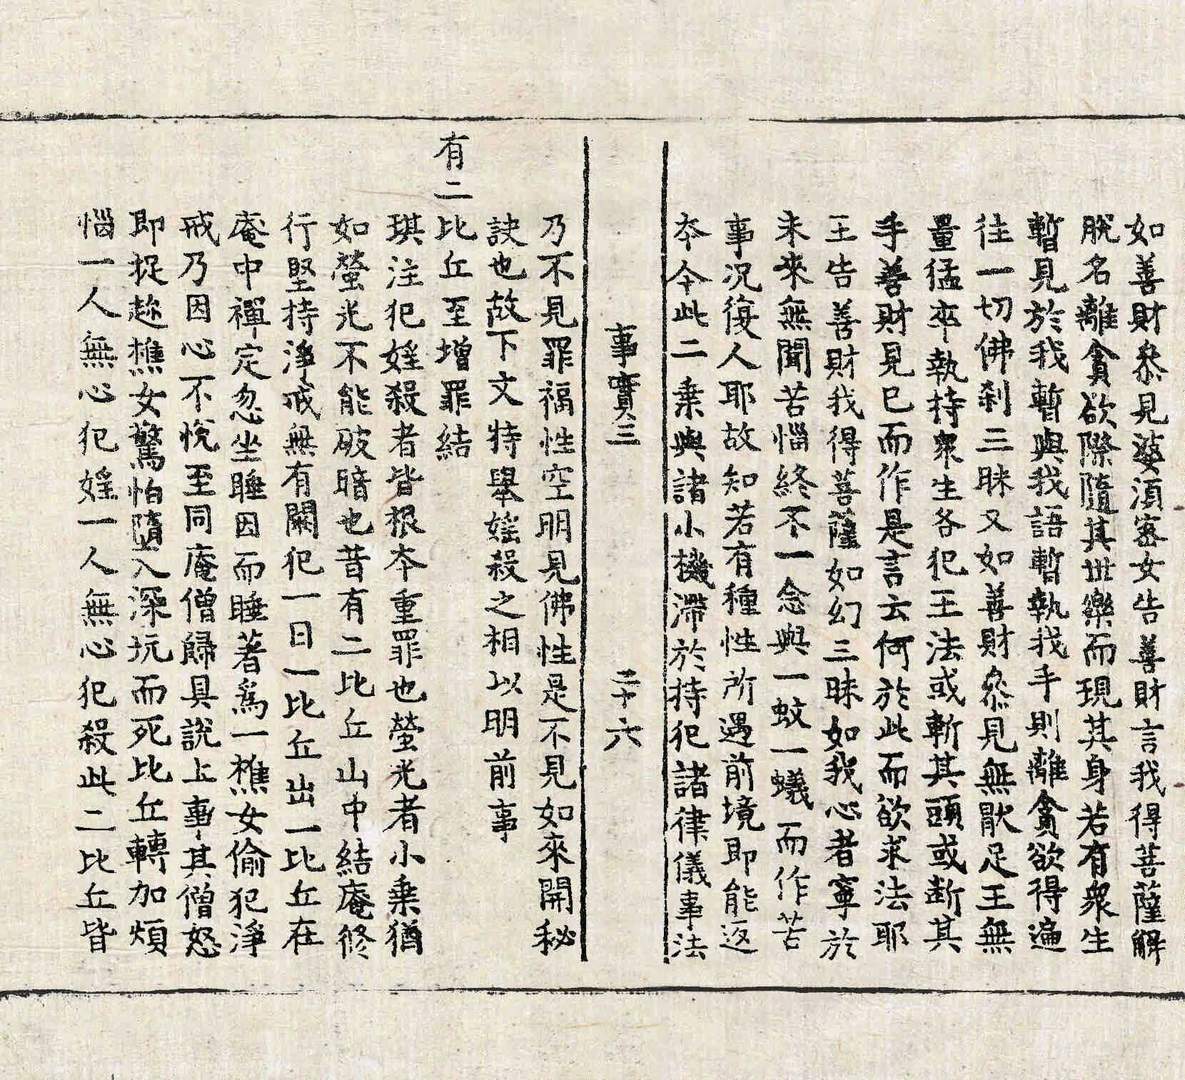 如善財叅見婆湏宻女告善財言我得菩薩解
脫名離貪欲際隨其世樂而現其身若有衆生
暫見於我暫與我語暫執我手則離貪欲得遍
往一切佛刹三昧又如善財叅見無猒足王無
量猛卒執持衆生各犯王法或斬其頭或断其
手善財見已而作是言云何於此而欲求法耶
王告善財我得菩薩如幻三昧如我心者寧於
未來無間苦惱終不一念與一蚊一蟻而作苦
事况復人耶故知若有種性所遇前境即能返
夲今此二乗與諸小機滯於持犯諸律儀事法
事實三
二十六
乃不見罪福性空明見佛性是不見如來開秘
訣也故下文特舉婬殺之相以明前事
有二比丘至增罪結
琪注犯婬殺者皆根夲重罪也螢光者小乗猶
如螢光不能破暗也昔有二比丘山中結庵修
行堅持淨戒無有闕犯一日一比丘出一比丘在
庵中禪定忽坐睡因而睡著爲一樵女偷犯淨
戒乃因心不悅至同庵僧歸具說上事其僧怒
即捉趂樵女驚怕墮入深坑而死比丘轉加煩
惱一人無心犯婬一人無心犯殺此二比丘皆